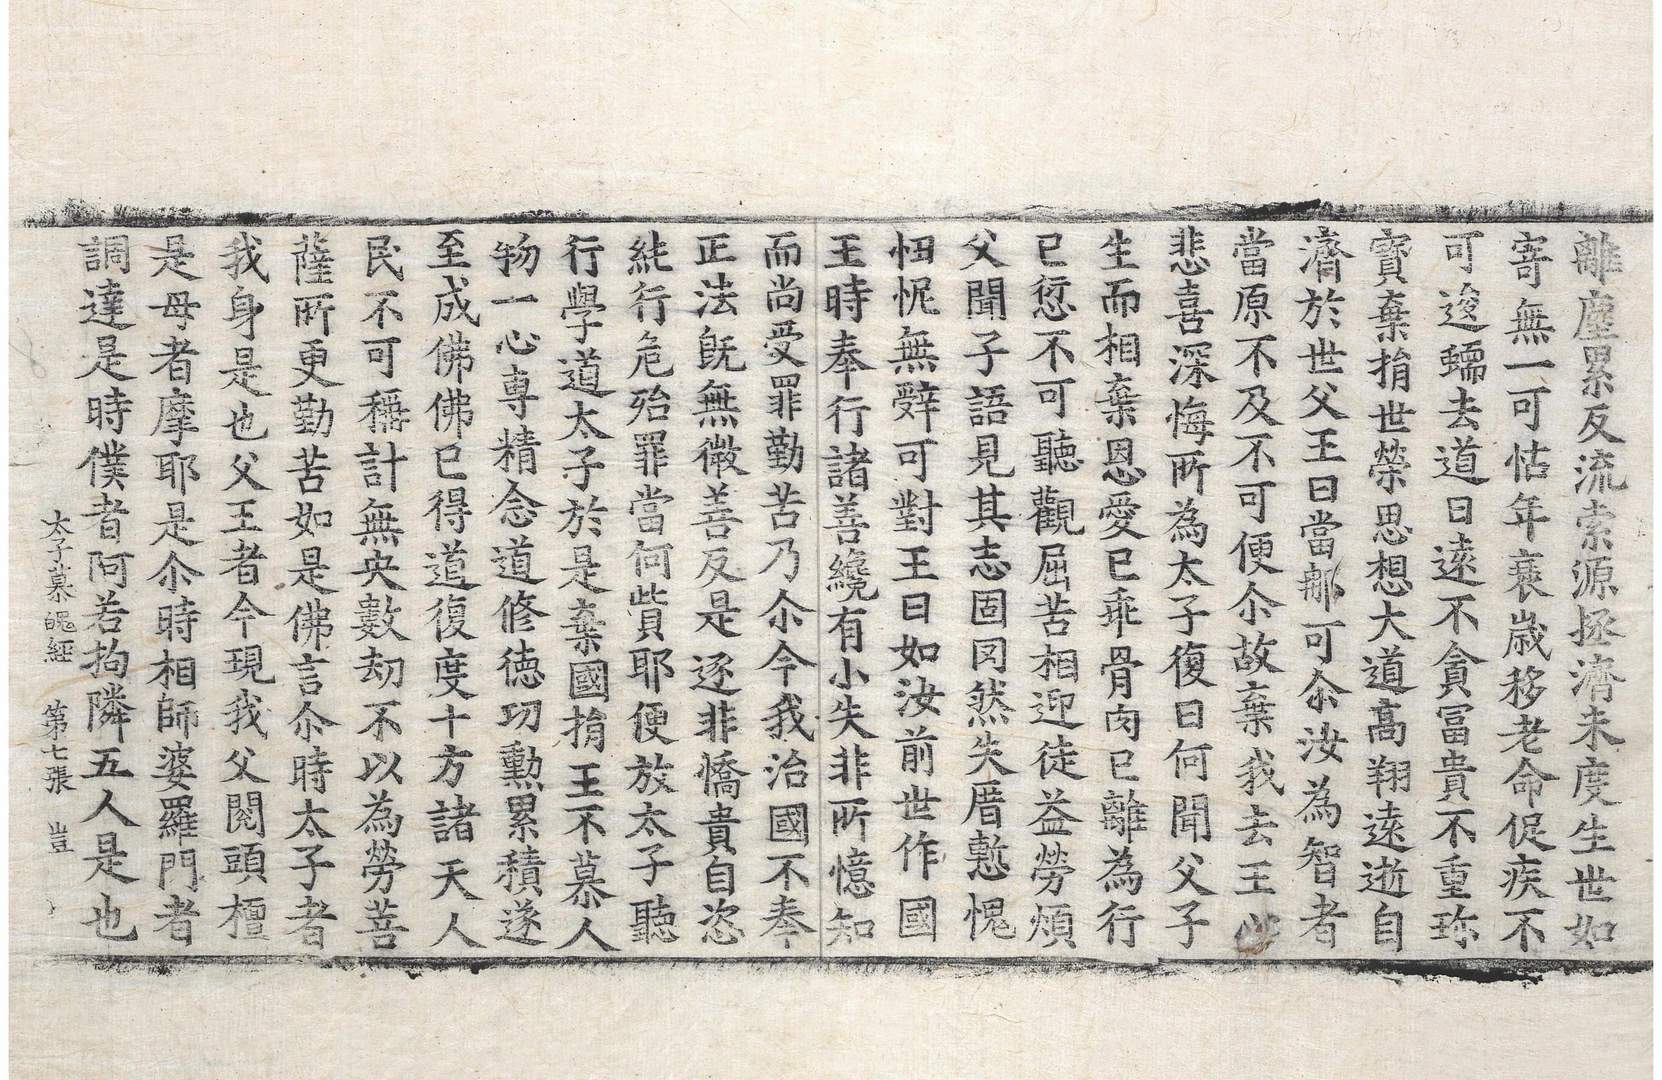 離塵累反流索源拯濟未度生世如
寄無一可怙年衰歲移老命促疾不
可逡蠕去道日遠不貪冨貴不重珎
寶棄捐世榮思想大道高翔遠逝自
濟於世父王曰當那可尒汝為智者
當原不及不可便尒故棄我去王心
悲喜深悔所為太子復曰何聞父子
生而相棄恩愛已乖骨肉已離為行
已愆不可聽觀屈苦相迎徒益勞煩
父聞子語見其志固罔然失厝慙愧
忸怩無辭可對王曰如汝前世作國
王時奉行諸善纔有小失非所憶知
而尚受罪勤苦乃尒今我治國不奉
正法旣無微善反是逐非憍貴自恣
紪行危殆罪當何貲耶便放太子聽
行學道太子於是棄國捐王不慕人
物一心專精念道修德功勳累積遂
至成佛佛已得道復度十方諸天人
民不可稱計無央數劫不以為勞菩
薩所更勤苦如是佛言尒時太子者
我身是也父王者今現我父閱頭檀
是母者摩耶是尒時相師婆羅門者
調達是時僕者阿若拘隣五人是也
太子慕魄經　第七張　豈